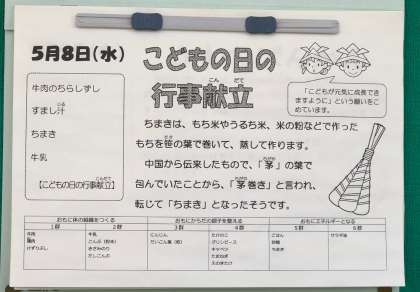 5月8日(水)
こどもの日の
行事献立
こん だて
牛肉のちらしずし
すまし汁
じる
ちまき
牛乳
【こどもの日の行事献立】
こんだて
「こどもが元気に成長でき
ますように」という願いをこ
めています。
ちまきは、もち米やうるち米、米の粉などで作った
もちを笹の葉で巻いて、蒸して作ります。
中国から伝来したもので、「茅」の葉で
包んでいたことから、「茅巻き」と言われ、
転じて「ちまき」となったそうです。
おもに体の組織をつくる
おもにからだの調子を整える
おもにエネルギーとなる
1群 2群 3群 4群 5群 6群
牛肉 牛乳 にんじん たけのこ ごはん サラダ油
鶏肉 こんぶ(粉末) だいこん葉(乾) グリンピース 砂糖
けずりぶし きざみのり キャベツ ちまき
だしこんぶ たまねぎ
えのきたけ